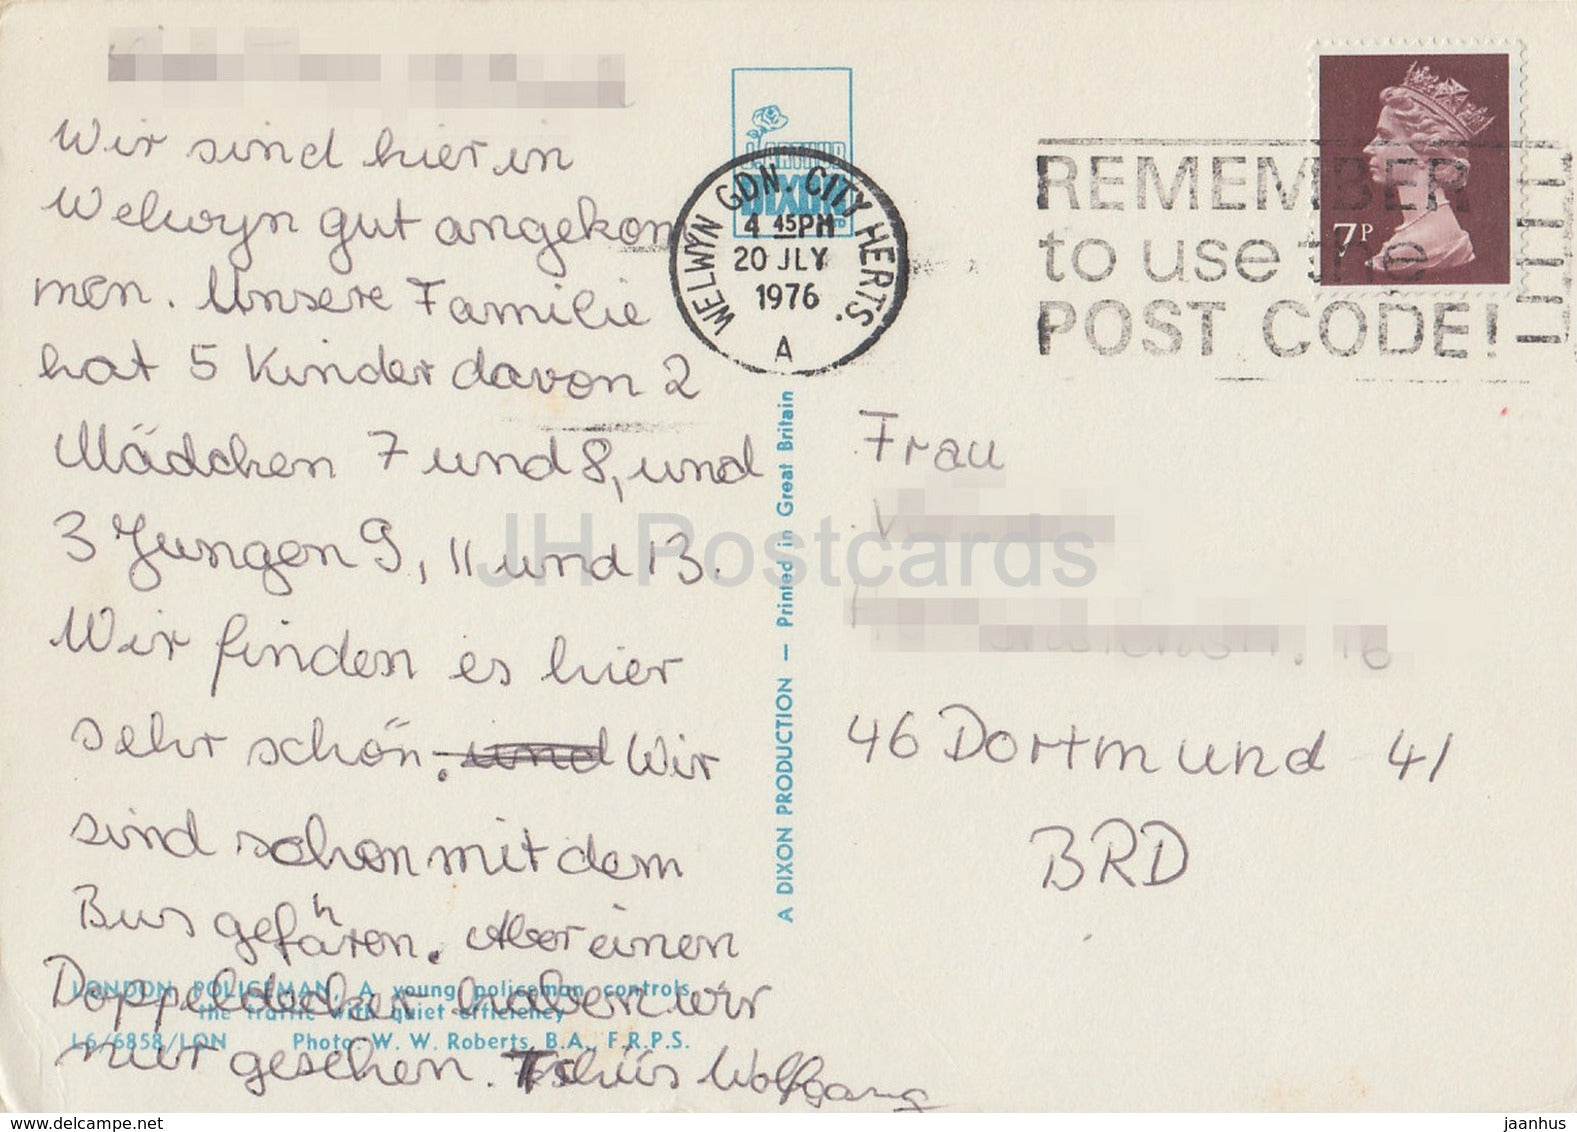 Wir sind hier in
Welwyn gut angekom
men. Unsere Familie
hat 5 Kinder davon 2
Mädchen 7 und 8, und
3 Jungen 9, 11 und 13.
Wir finden es hier
sehr schön. und Wir
sind schon mit dem
Bus gefähren. Aber einen
Doppeldecker haben wir
nur gesehen. Tschüs Wolfgang
LONDON POLICEMAN. A young policeman controls
the traffic with quiet efficiency
L6/6858/LON Photo: W. W. Roberts, B.A., F.R.P.S.
DIXON
WELWYN GDN. CITY HERTS.
4 45 PM
20 JLY
1976
A
A DIXON PRODUCTION — Printed in Great Britain
REMEMBER
to use the
POST CODE!
7P
Frau
V
16
46 Dortmund 41
BRD
JH Postcards
delcampe.net
jaanhus